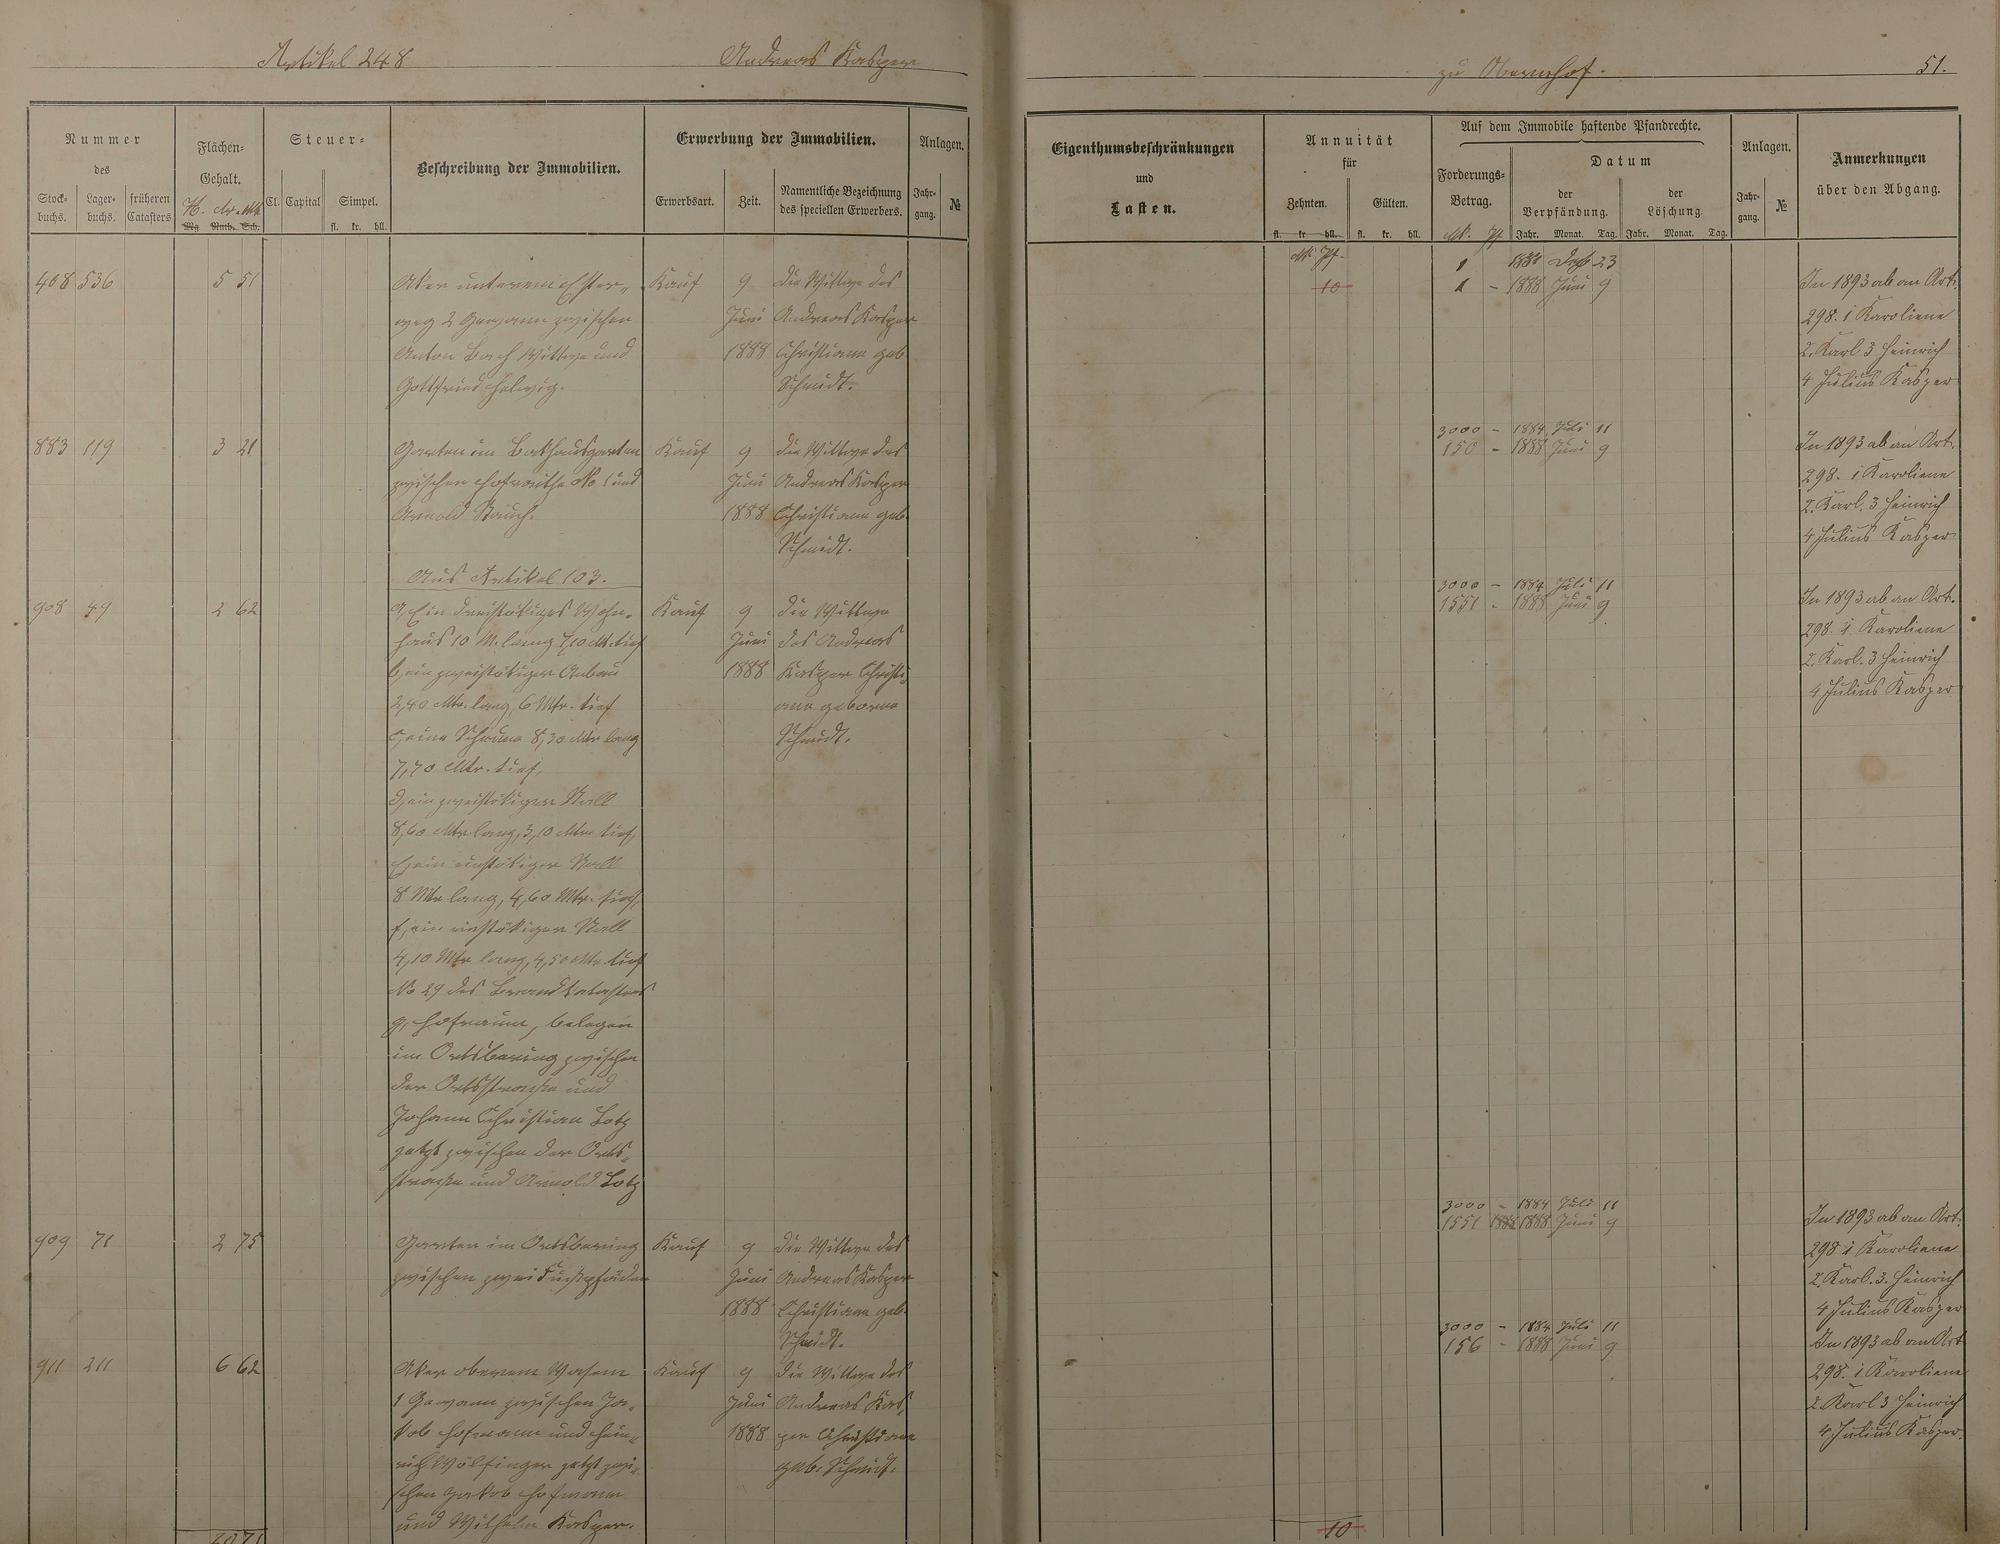 Artikel 248 Andreas Kasper zu Obernhof. 51.
Nummer
des
Stock-
buchs.
Lager-
buchs.
früheren
Catasters
Flächen-
Gehalt.
H. Ar. Mt.
Mg. Ruth. Sch.
Steuer-
Cl. Capital Simpel.
fl. kr. hll.
Beschreibung der Immobilien.
Erwerbung der Immobilien.
Erwerbsart. Zeit.
Namentliche Bezeichnung
des speciellen Erwerbers.
Anlagen.
Jahr-
gang.
№
Eigenthumsbeschränkungen
und
Lasten.
Annuität
für
Zehnten. Gülten.
fl. kr. hll. fl. kr. hll.
Mk. Pf.
Auf dem Immobile haftende Pfandrechte.
Forderungs-
Betrag.
Mk. Pf.
Datum
der
Verpfändung.
der
Löschung.
Jahr. Monat. Tag. Jahr. Monat. Tag.
Anlagen.
Jahr-
gang.
№
Anmerkungen
über den Abgang.
408 536 5 51
Aker unterem
weg 2 Gewann zwischen
Anton Bach Wittwe und
Gottfried Helwig.
Kauf
9
Juni
1888
die Wittwe des
Andreas Kasper
Christiane geb.
Schmidt.
10
1 23
1 - 1888 Juni 9
In 1893 ab an Art.
298. 1 Karoliene
2. Karl 3 Heinrich
4 Julius Kasper
883 119 3 21
Garten im Bakhausgarten
zwischen Hofreithe No 1 und
Arnold Bauch.
Kauf
9
Juni
1888
die Wittwe des
Andreas Kasper
Christiane geb.
Schmidt.
3000 - 1884 Juli 11
150 - 1888 Juni 9
In 1893 ab an Art.
298. 1 Karoliene
2. Karl. 3 Heinrich
4 Julius Kasper
Aus Artikel 103.
908 49 2 62
a, Ein dreistökiges Wohn-
haus 10 M. lang 7,10 Mt. tief
b, ein zweistökiger Anbau
2,40 Mtr. lang, 6 Mtr. tief
c, eine Scheune 8,30 Mtr lang
7,70 Mtr. tief,
d, ein zweistökiger Stall
8,60 Mtr lang, 3,10 Mtr. tief,
e, ein einstökiger Stall
8 Mtr lang, 4,60 Mtr. tief,
f, ein einstökiger Stall
4,10 Mtr lang, 4,50 Mtr. tief
No 29 des Brandkatasters
g, Hofraum, belegen
im Ortsbering zwischen
der Ortsstraße und
Johann Christian Lotz
jetzt zwischen der Orts-
straße und Arnold Lotz
Kauf
9
Juni
1888
die Wittwe
des Andreas
Kasper Christi-
ane geborne
Schmidt.
3000 - 1884 Juli 11
1551 - 1888 Juni 9
In 1893 ab an Art.
298. 1. Karoliene
2. Karl. 3 Heinrich
4 Julius Kasper
909 71 2 75
Garten im Ortsbering
zwischen zwei Fußpfäden
Kauf
9
Juni
1888
die Wittwe des
Andreas Kasper
Christiane geb.
Schmidt.
3000 - 1884 Juli 11
1551 1888 Juni 9
In 1893 ab an Art.
298 1 Karoliene
2. Karl. 3. Heinrich
4 Julius Kasper
911 211 6 62
Aker oberem Wasem
1 Gewann zwischen Ja-
kob Hofmann und Hein-
rich Wölfinger jetzt zwi-
schen Jakob Hofmann
und Wilhelm Kasper.
Kauf
9
Juni
1888
die Wittwe des
Andreas Kas-
per Christiane
geb. Schmidt.
3000 - 1884 Juli 11
156 - 1888 Juni 9
In 1893 ab an Art
298. 1 Karoliene
2 Karl 3 Heinrich
4 Julius Kasper.
20 71
10